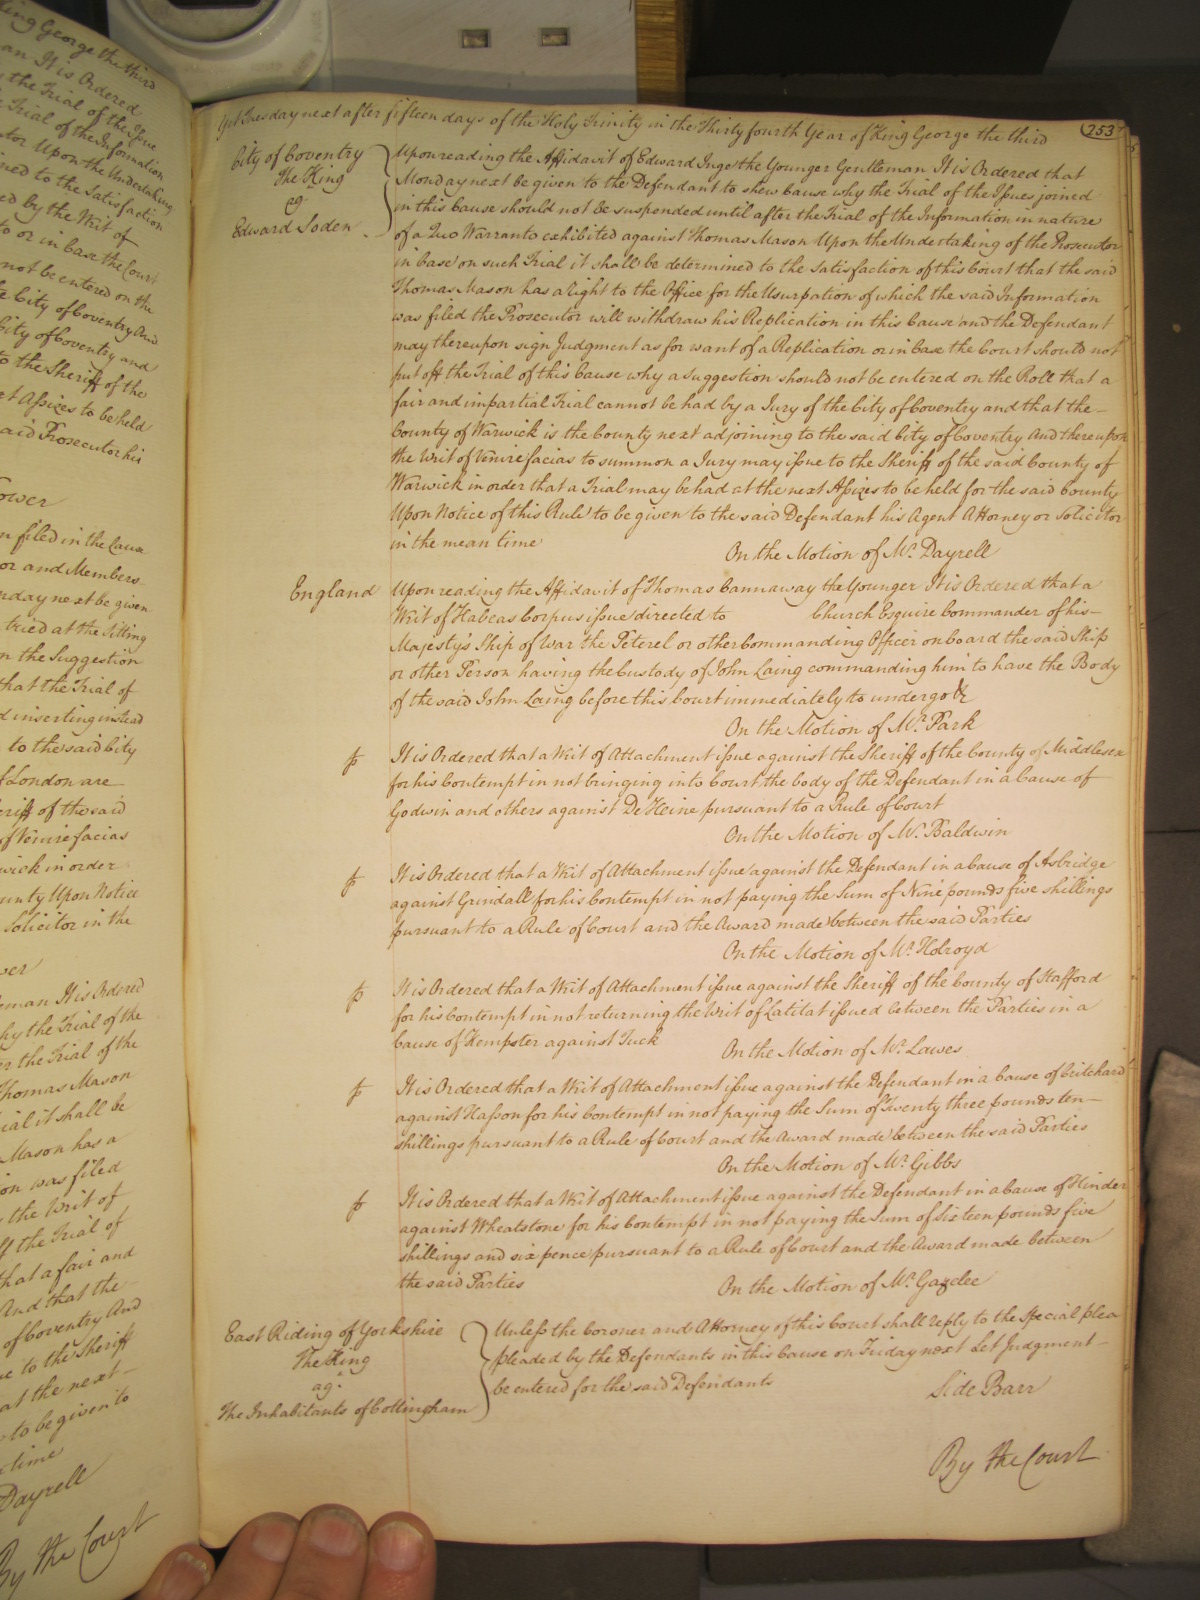 King George the third
an It is Ordered
the Trial of the Issue
Trial of the Information
utor Upon the Undertaking
ined to the Satisfaction
ed by the Writ of
to or in Case the Court
not be entered on the
City of Coventry And
City of Coventry and
to the Sheriff of the
t Assizes to be held
aid Prosecutor his
ower
n filed in the Cause
or and Members
nday next be given
tried at the Sitting
n the Suggestion
that the Trial of
d inserting instead
to the said City
f London are
eriff of the said
of Venire facias
wick in order
unty Upon Notice
Solicitor in the
wer
eman It is Ordered
hy the Trial of the
er the Trial of the
Thomas Mason
ial it shall be
Mason has a
ion was filed
the Writ of
ff the Trial of
that a fair and
And that the
of Coventry And
ue to the Sheriff
at the next
to be given to
time
Dayrell
By the Court
Yet Tuesday next after fifteen days of the Holy Trinity in the Thirty fourth Year of King George the third
253
City of Coventry
The King
ag
Edward Soden
Upon reading the Affidavit of Edward Inge the Younger Gentleman It is Ordered that
Monday next be given to the Defendant to shew cause why the Trial of the Issues joined
in this Cause should not be suspended until after the Trial of the Information in nature
of a Quo Warranto exhibited against Thomas Mason Upon the Undertaking of the Prosecutor
in Case on such Trial it shall be determined to the Satisfaction of this Court that the said
Thomas Mason has a Right to the Office for the Usurpation of which the said Information
was filed the Prosecutor will withdraw his Replication in this Cause and the Defendant
may thereupon sign Judgment as for want of a Replication or in Case the Court should not
put off the Trial of this Cause why a suggestion should not be entered on the Roll that a
fair and impartial Trial cannot be had by a Jury of the City of Coventry and that the
County of Warwick is the County next adjoining to the said City of Coventry And thereupon
the Writ of Venire facias to summon a Jury may issue to the Sheriff of the said County of
Warwick in order that a Trial may be had at the next Assizes to be held for the said County
Upon Notice of this Rule to be given to the said Defendant his Agent Attorney or Solicitor
in the mean time
On the Motion of Mr. Dayrell
England
Upon reading the Affidavit of Thomas Cannaway the Younger It is Ordered that a
Writ of Habeas Corpus issue directed to Church Esquire Commander of his
Majesty's Ship of War the Peterel or other Commanding Officer on board the said Ship
or other Person having the Custody of John Laing commanding him to have the Body
of the said John Laing before this Court immediately to undergo &c
On the Motion of Mr. Park
It is Ordered that a Writ of Attachment issue against the Sheriff of the County of Middlesex
for his Contempt in not bringing into Court the body of the Defendant in a Cause of
Godwin and others against De Heine pursuant to a Rule of Court
On the Motion of Mr. Baldwin
It is Ordered that a Writ of Attachment issue against the Defendant in a Cause of Asbridge
against Grindall for his Contempt in not paying the Sum of Nine pounds five shillings
pursuant to a Rule of Court and the Award made between the said Parties
On the Motion of Mr. Holroyd
It is Ordered that a Writ of Attachment issue against the Sheriff of the County of Stafford
for his Contempt in not returning the Writ of Latitat issued between the Parties in a
Cause of Kempster against Tuck
On the Motion of Mr. Lawes
It is Ordered that a Writ of Attachment issue against the Defendant in a Cause of Critchard
against Hasson for his Contempt in not paying the Sum of Twenty three pounds ten
shillings pursuant to a Rule of Court and the Award made between the said Parties
On the Motion of Mr. Gibbs
It is Ordered that a Writ of Attachment issue against the Defendant in a Cause of Hinder
against Wheatstone for his Contempt in not paying the Sum of Sixteen pounds five
shillings and six pence pursuant to a Rule of Court and the Award made between
the said Parties
On the Motion of Mr. Gazelee
East Riding of Yorkshire
The King
agt.
The Inhabitants of Cottingham
Unless the Coroner and Attorney of this Court shall reply to the special plea
pleaded by the Defendants in this Cause on Friday next Let Judgment
be entered for the said Defendants
Side Barr
By the Court